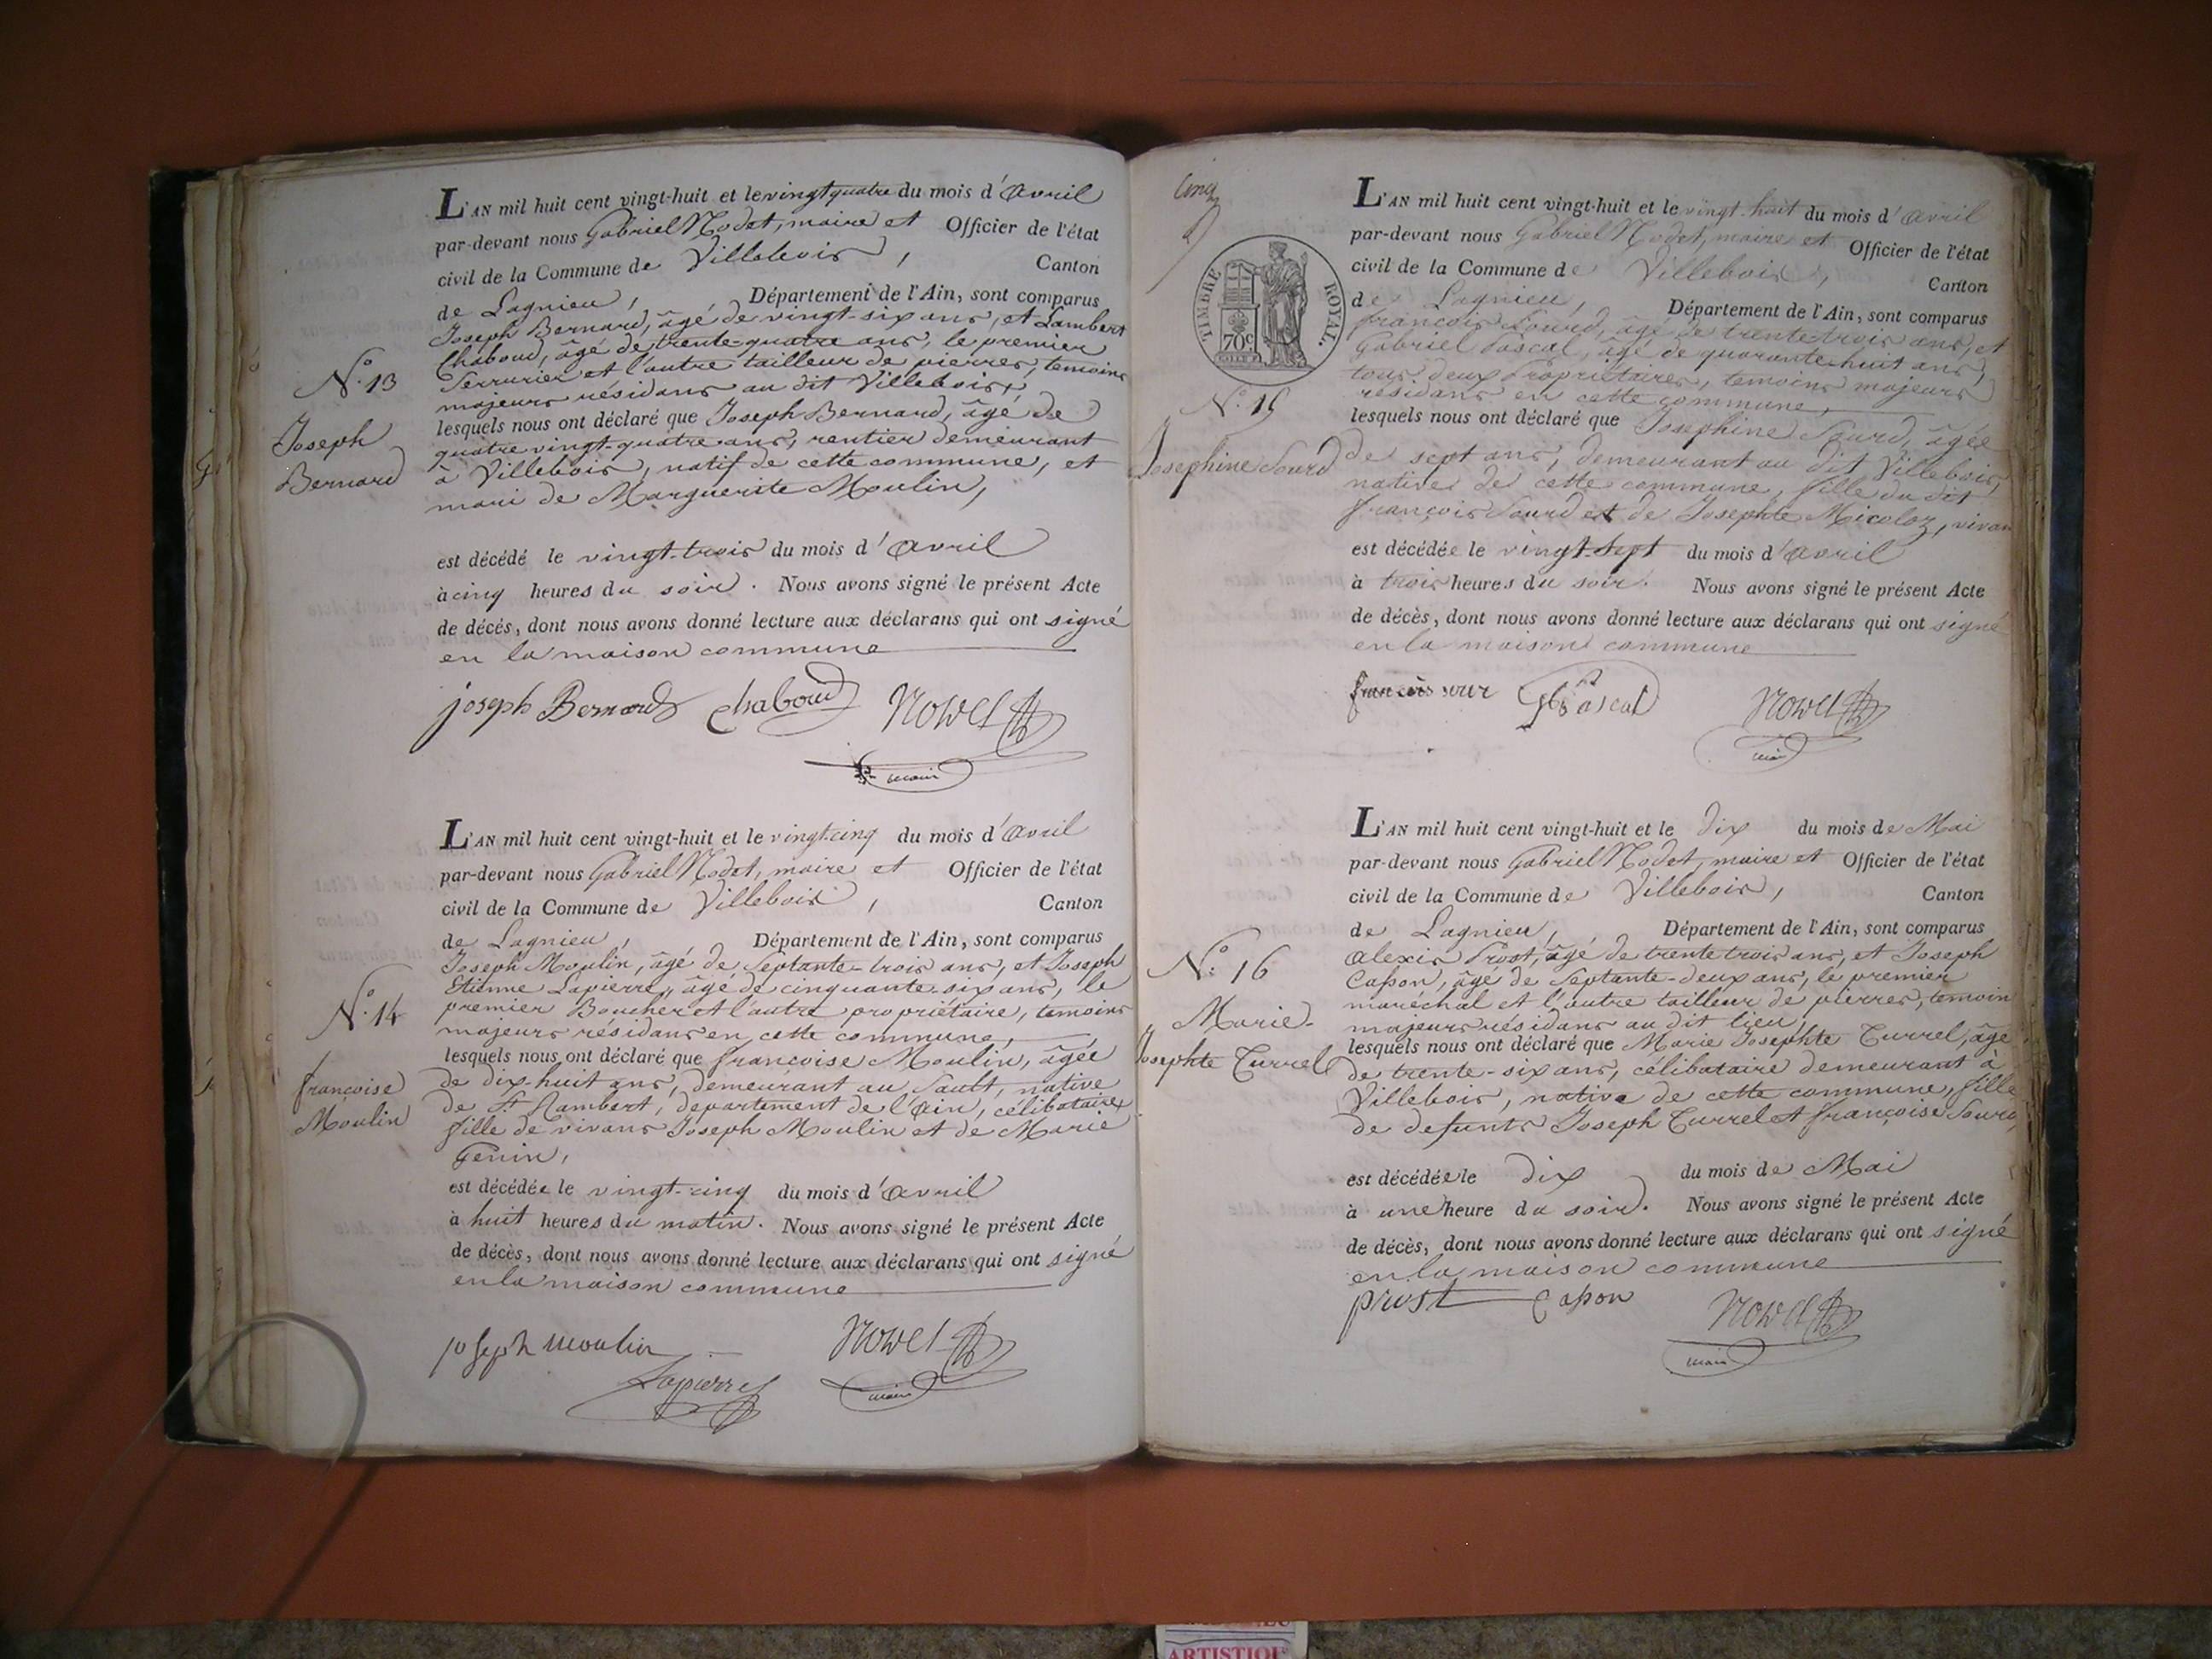 L'AN mil huit cent vingt-huit et le vingt quatre du mois d'avril
par-devant nous Gabriel Nodet, maire et Officier de l'état
civil de la Commune de Villebois, Canton
de Lagnieu, Département de l'Ain, sont comparus
Joseph Bernard, âgé de vingt-six ans, et Lambert
Chaboud, âgé de trente-quatre ans, le premier
Serrurier et l'autre tailleur de pierres, temoins
majeurs résidans au dit Villebois,
lesquels nous ont déclaré que Joseph Bernard, âgé de
quatre vingt-quatre ans, rentier demeurant
à Villebois, natif de cette commune, et
mari de Marguerite Moulin,
est décédé le vingt-trois du mois d'avril
à cinq heures du soir. Nous avons signé le présent Acte
de décés, dont nous avons donné lecture aux déclarans qui ont signé
en la maison commune
joseph Bernard chaboud
maire
N.o 13
Joseph
Bernard
L'AN mil huit cent vingt-huit et le vingt-cinq du mois d'avril
par-devant nous Gabriel Nodet, maire et Officier de l'état
civil de la Commune de Villebois, Canton
de Lagnieu, Département de l'Ain, sont comparus
Joseph Moulin, âgé de Septante-trois ans, et Joseph
Etienne Lapierre, âgé de cinquante-six ans, le
premier Boucher et l'autre propriétaire, temoins
majeurs résidans en cette commune,
lesquels nous ont déclaré que françoise Moulin, âgée
de dix-huit ans, demeurant au Sault, native
de St Rambert, département de l'ain, célibataire
fille de vivans Joseph Moulin et de Marie
Genin,
est décédée le vingt-cinq du mois d'avril
à huit heures du matin. Nous avons signé le présent Acte
de décès, dont nous avons donné lecture aux déclarans qui ont signé
en la maison commune
joseph moulin
Lapierre
maire
N.o 14
françoise
Moulin
Cinq
TIMBRE ROYAL.
70c
N.o 15
Josephine Sourd
L'AN mil huit cent vingt-huit et le vingt-huit du mois d'avril
par-devant nous Gabriel Nodet, maire et Officier de l'état
civil de la Commune de Villebois, Canton
de Lagnieu, Département de l'Ain, sont comparus
françois Sourd, âgé de trente trois ans, et
Gabriel Pascal, âgé de quarante-huit ans,
tous deux Propriétaires, temoins majeurs
résidans en cette commune,
lesquels nous ont déclaré que Josephine Sourd, âgée
de sept ans, demeurant au dit Villebois,
native de cette commune, fille du dit
françois Sourd et de Josephte Micoloz, vivan
est décédée le vingt-sept du mois d'avril
à trois heures du soir. Nous avons signé le présent Acte
de décès, dont nous avons donné lecture aux déclarans qui ont signé
en la maison commune
françois
maire
L'AN mil huit cent vingt-huit et le dix du mois de Mai
par-devant nous Gabriel Nodet, maire et Officier de l'état
civil de la Commune de Villebois, Canton
de Lagnieu, Département de l'Ain, sont comparus
alexis Prost, âgé de trente trois ans, et Joseph
Casson, âgé de Septante-deux ans, le premier
maréchal et l'autre tailleur de pierres, temoin
majeurs résidans au dit lieu,
lesquels nous ont déclaré que Marie Josephte Currel, âgé
de trente-six ans, célibataire demeurant à
Villebois, native de cette commune, fille
de defunts Joseph Currel et françoise Sourd,
est décédée le dix du mois de Mai
à une heure du soir. Nous avons signé le présent Acte
de décès, dont nous avons donné lecture aux déclarans qui ont signé
en la maison commune
prost casson
maire
N.o 16
Marie-
Josephte Currel
ARTISTIQU